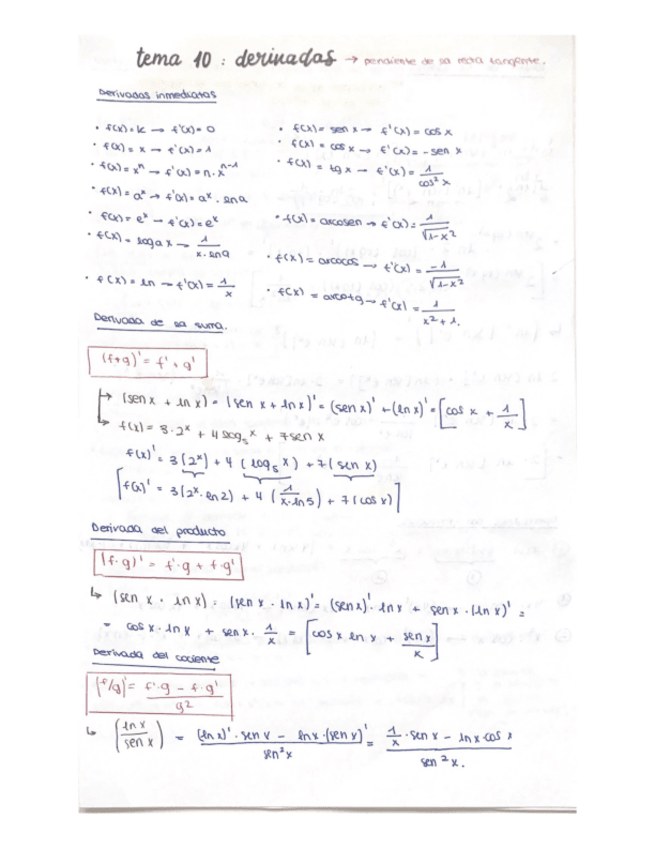 tema 10 : derivadas → pendiente de la recta tangente.
Derivadas inmediatas
• f(x) = k → f'(x) = 0
• f(x) = x → f'(x) = 1
• f(x) = xⁿ → f'(x) = n · xⁿ⁻¹
• f(x) = aˣ → f'(x) = aˣ · ln a
• f(x) = eˣ → f'(x) = eˣ
• f(x) = log a x → 1 / x · ln a
• f(x) = ln → f'(x) = 1/x
• f(x) = sen x → f'(x) = cos x
• f(x) = cos x → f'(x) = - sen x
• f(x) = tg x → f'(x) = 1 / cos² x
• f(x) = arcosen → f'(x) = 1 / √1-x²
• f(x) = arcocos → f'(x) = -1 / √1-x²
• f(x) = arcotg → f'(x) = 1 / x² + 1.
Derivada de la suma.
(f+g)' = f' + g'
↳ (sen x + ln x) = (sen x + ln x)' = (sen x)' + (ln x)' = [cos x + 1/x]
↳ f(x) = 3 · 2ˣ + 4 log₅ x + 7 sen x
f(x)' = 3 (2ˣ) + 4 (log₅ x) + 7 (sen x)
[f(x)' = 3 (2ˣ · ln 2) + 4 (1 / x · ln 5) + 7 (cos x)]
Derivada del producto
(f · g)' = f' · g + f · g'
↳ (sen x · ln x) = (sen x · ln x)' = (sen x)' · ln x + sen x · (ln x)' =
= cos x · ln x + sen x · 1/x = [cos x ln x + sen x / x]
Derivada del cociente
(f/g)' = f' · g - f · g' / g²
↳ (ln x / sen x) = (ln x)' · sen x - ln x · (sen x)' / sen² x = 1/x · sen x - ln x · cos x / sen² x.